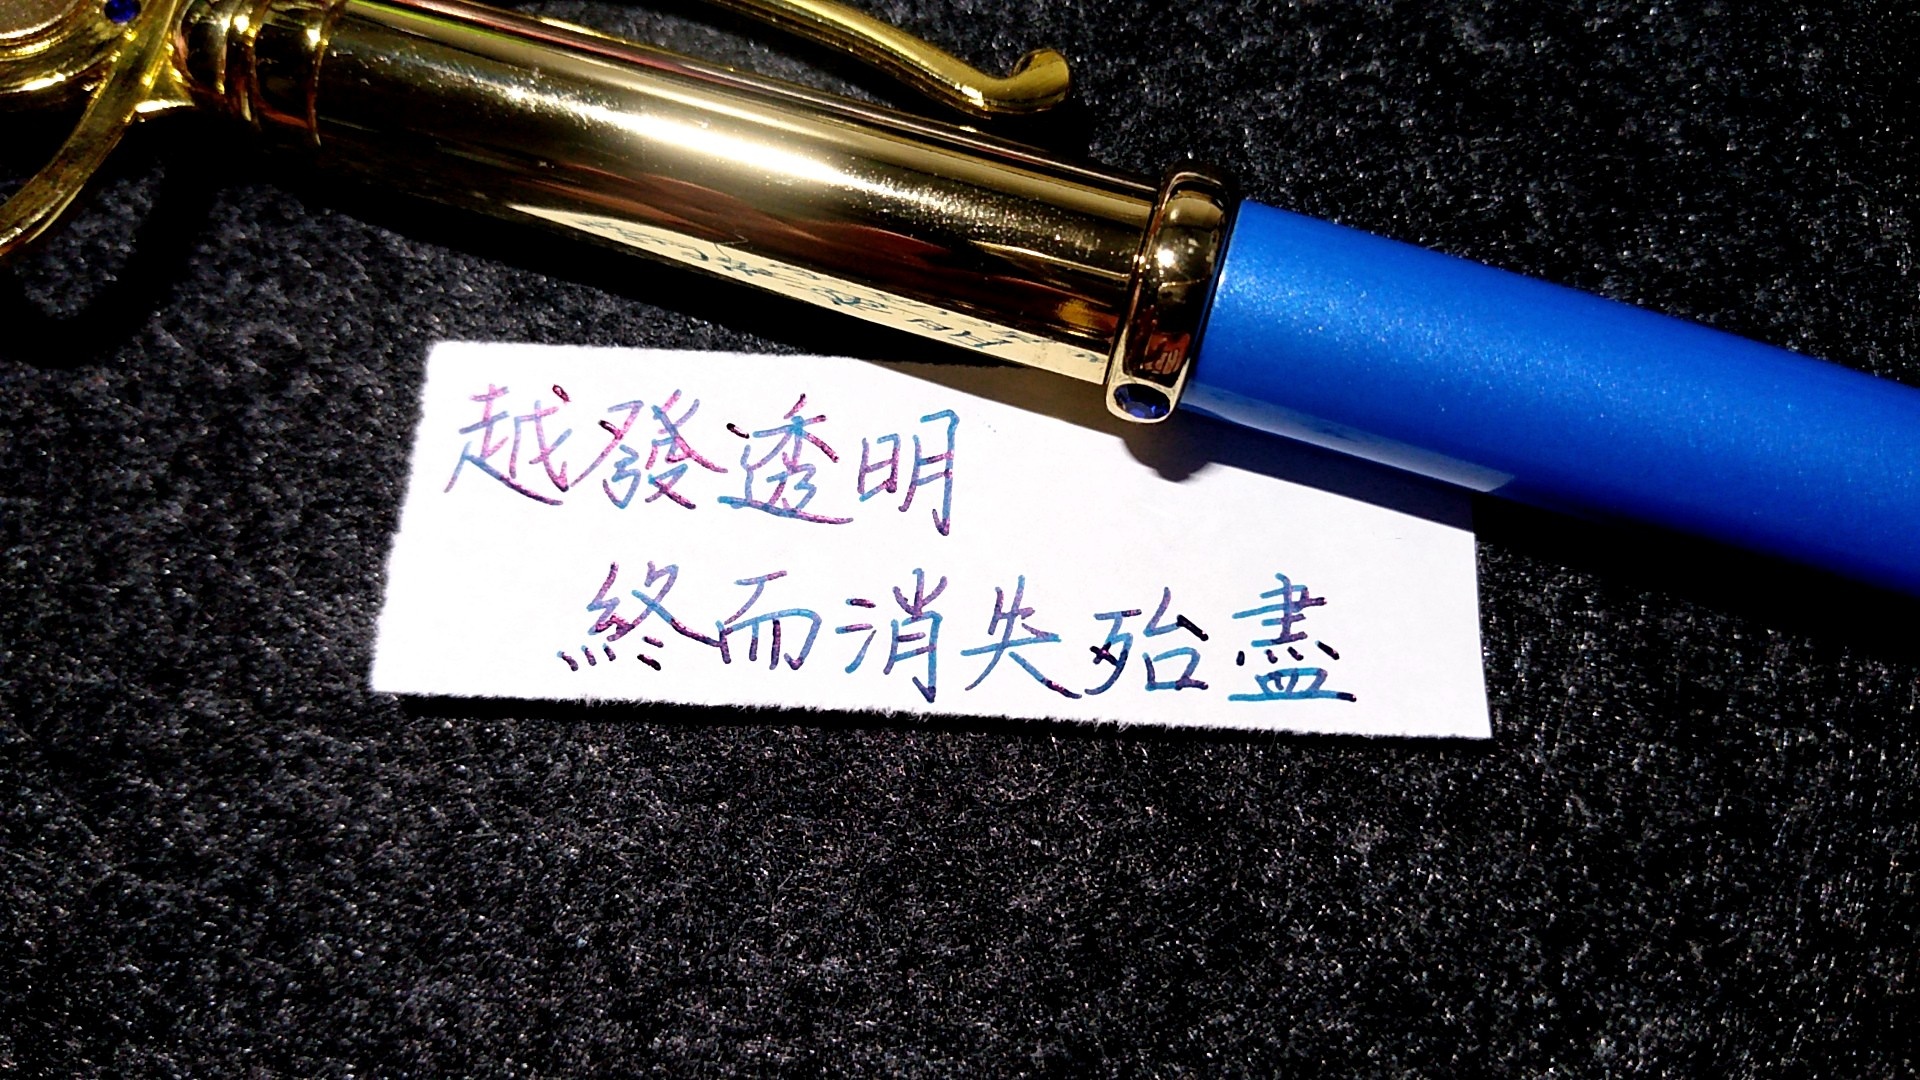 越發透明
終而消失殆盡